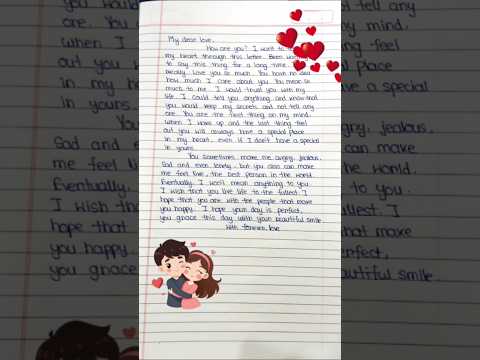 My dear love,
How are you? I want to
my heart through this letter. Been
to say this thing for a long time.
Really Love you so much. You have no idea
how much I care about you. You mean so
much to me. I would trust you with my
life. I could tell you anything, and know that
you would keep my secrets and not tell any
are. You are the thing on my mind.
when I wake up and the last thing feel
out you will always have a special place
in my heart, even if I don't have a special
in yours.
You sometimes make me angry, jealous.
Sad and even lonely, but you also can make
me feel like, the best person in the world.
Eventually. I won't mean anything to you.
I wish that you live life to the fullest. I
hope that you are with the people that make
you happy. I hope your day is perfect,
you grace this day with your beautiful smile.
With forever, love